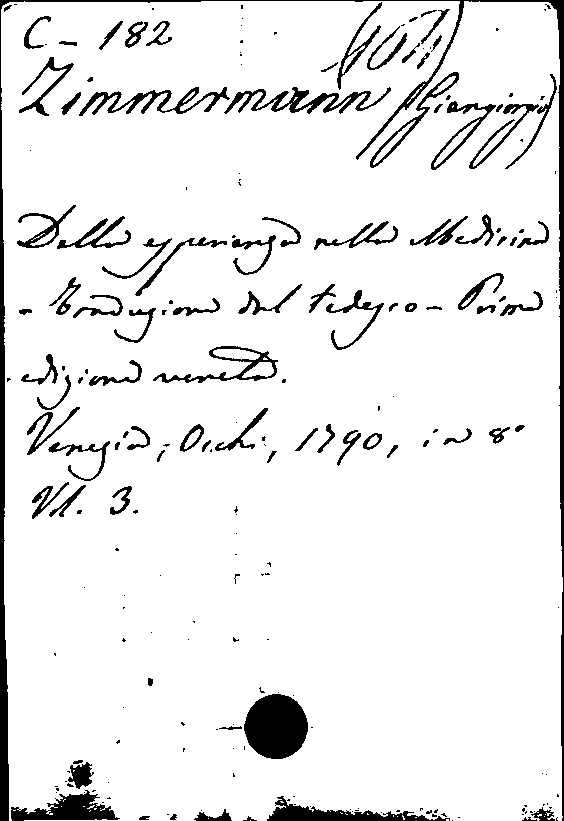 C - 182
Zimmermann (Giangiorgio)
Della esperienza nella Medicina
- Traduzione dal tedesco - Prima
edizione veneta.
Venezia, Occhi, 1790, in 8°
Vl. 3.